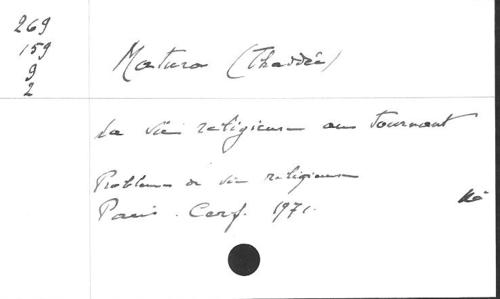 269
159
9
2
Matura (Thaddée)
La vie religieuse au tournant
Problemes de vie religieuse
Paris. Cerf. 1971.